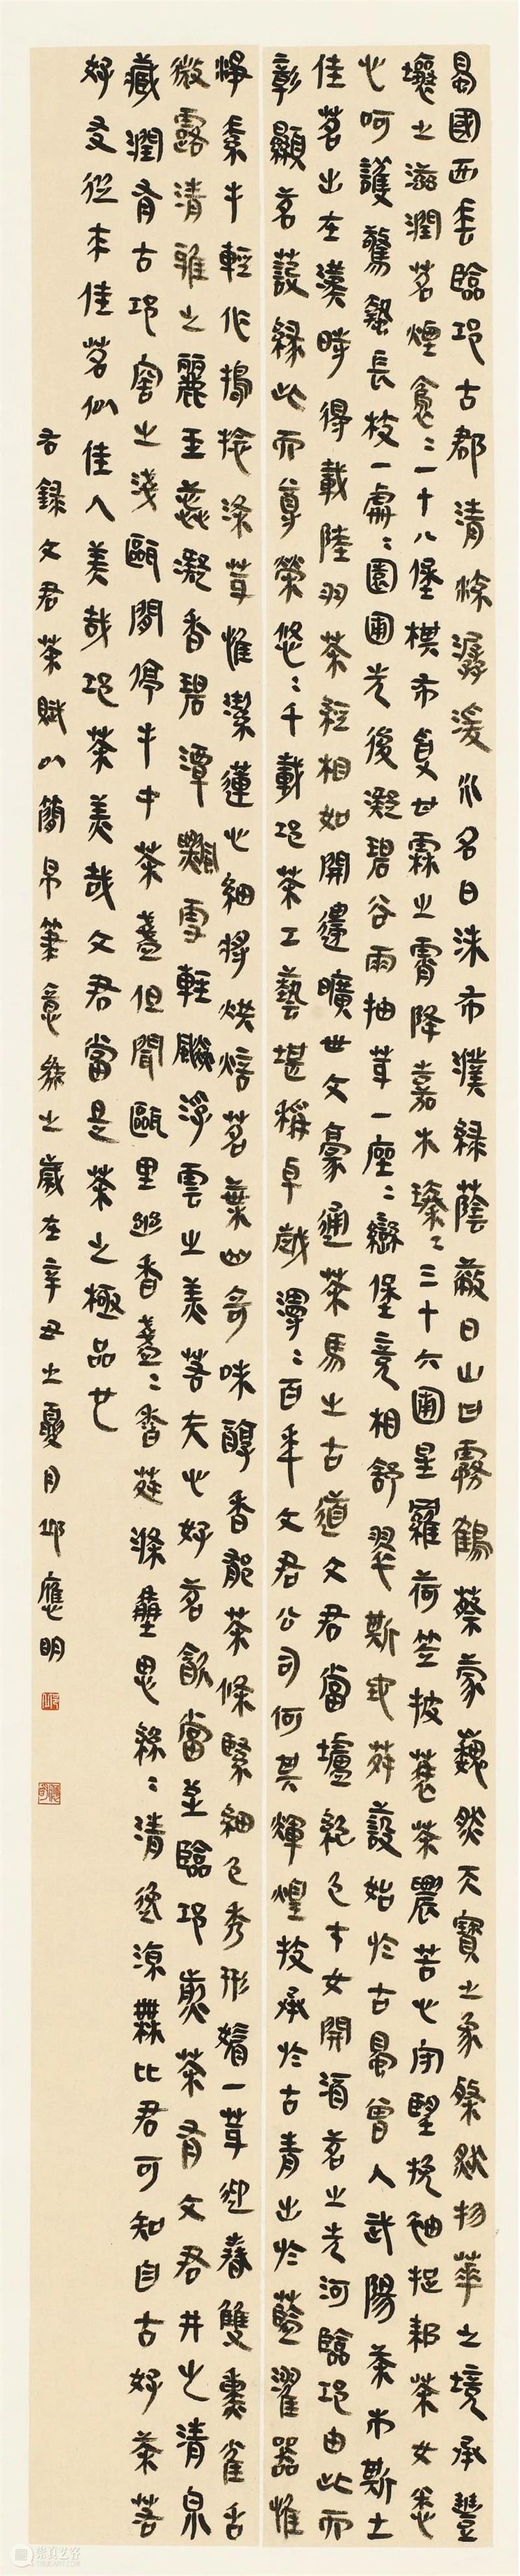 蜀國西嶽臨邛古郡清㴋潺湲水名曰沫市濮綠蔭蔽日山曰霧鶴蔡蒙巍然天寶之象粲然物華之境承豐
壤之滋潤茗煙裊〻一十八堡棋布夏世霖之霄降嘉木蓁〻三十六圃星羅荷笠披蓑茶農苦心守望挽袖捉耜茶女悉
心呵護驚蟄長枝一處〻園圃先後凝碧谷雨抽芽一座〻巒堡竟相舒翠斯也茶設始於古蜀曾入武陽茶市斯土
佳茗出在漢時得載陸羽茶經相如開邊曠世文豪通茶馬之古道文君當壚絕色才女開酒茗之先河臨邛由此而
彰顯茗茶緣此而尊榮悠〻千載邛茶工藝堪稱卓越漫〻百年文君公司何其輝煌技承於古青出於藍濯器惟
淨素手輕作搗捻滌芽惟潔蓮心細將烘焙茗葉出奇味醇香馥茶條緊細色秀形嬌一芽迎春雙裹雀舌
微露清雅之麗玉蕊凝香碧潭飄雪輕颺浮雲之美若夫心好茗飲當至臨邛煮茶有文君井之清泉
藏潤有古邛窖之淺甌閒停手中茶盞但聞甌里幽香盞〻香茶滌塵思綠〻清逸涼無比君可知自古好茶若
好友從來佳茗似佳人美哉邛茶美哉文君當是茶之極品也
右錄文君茶賦以簡帛筆意為之歲在辛丑之夏月邛應明
崇真艺客